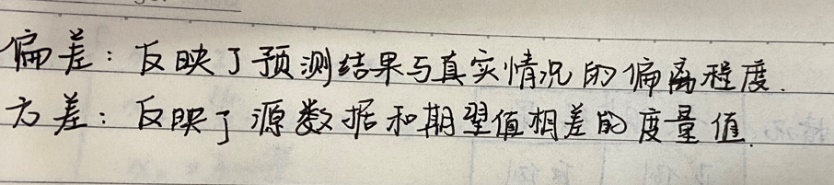 偏差：反映了预测结果与真实情况的偏离程度.
方差：反映了源数据和期望值相差的度量值.